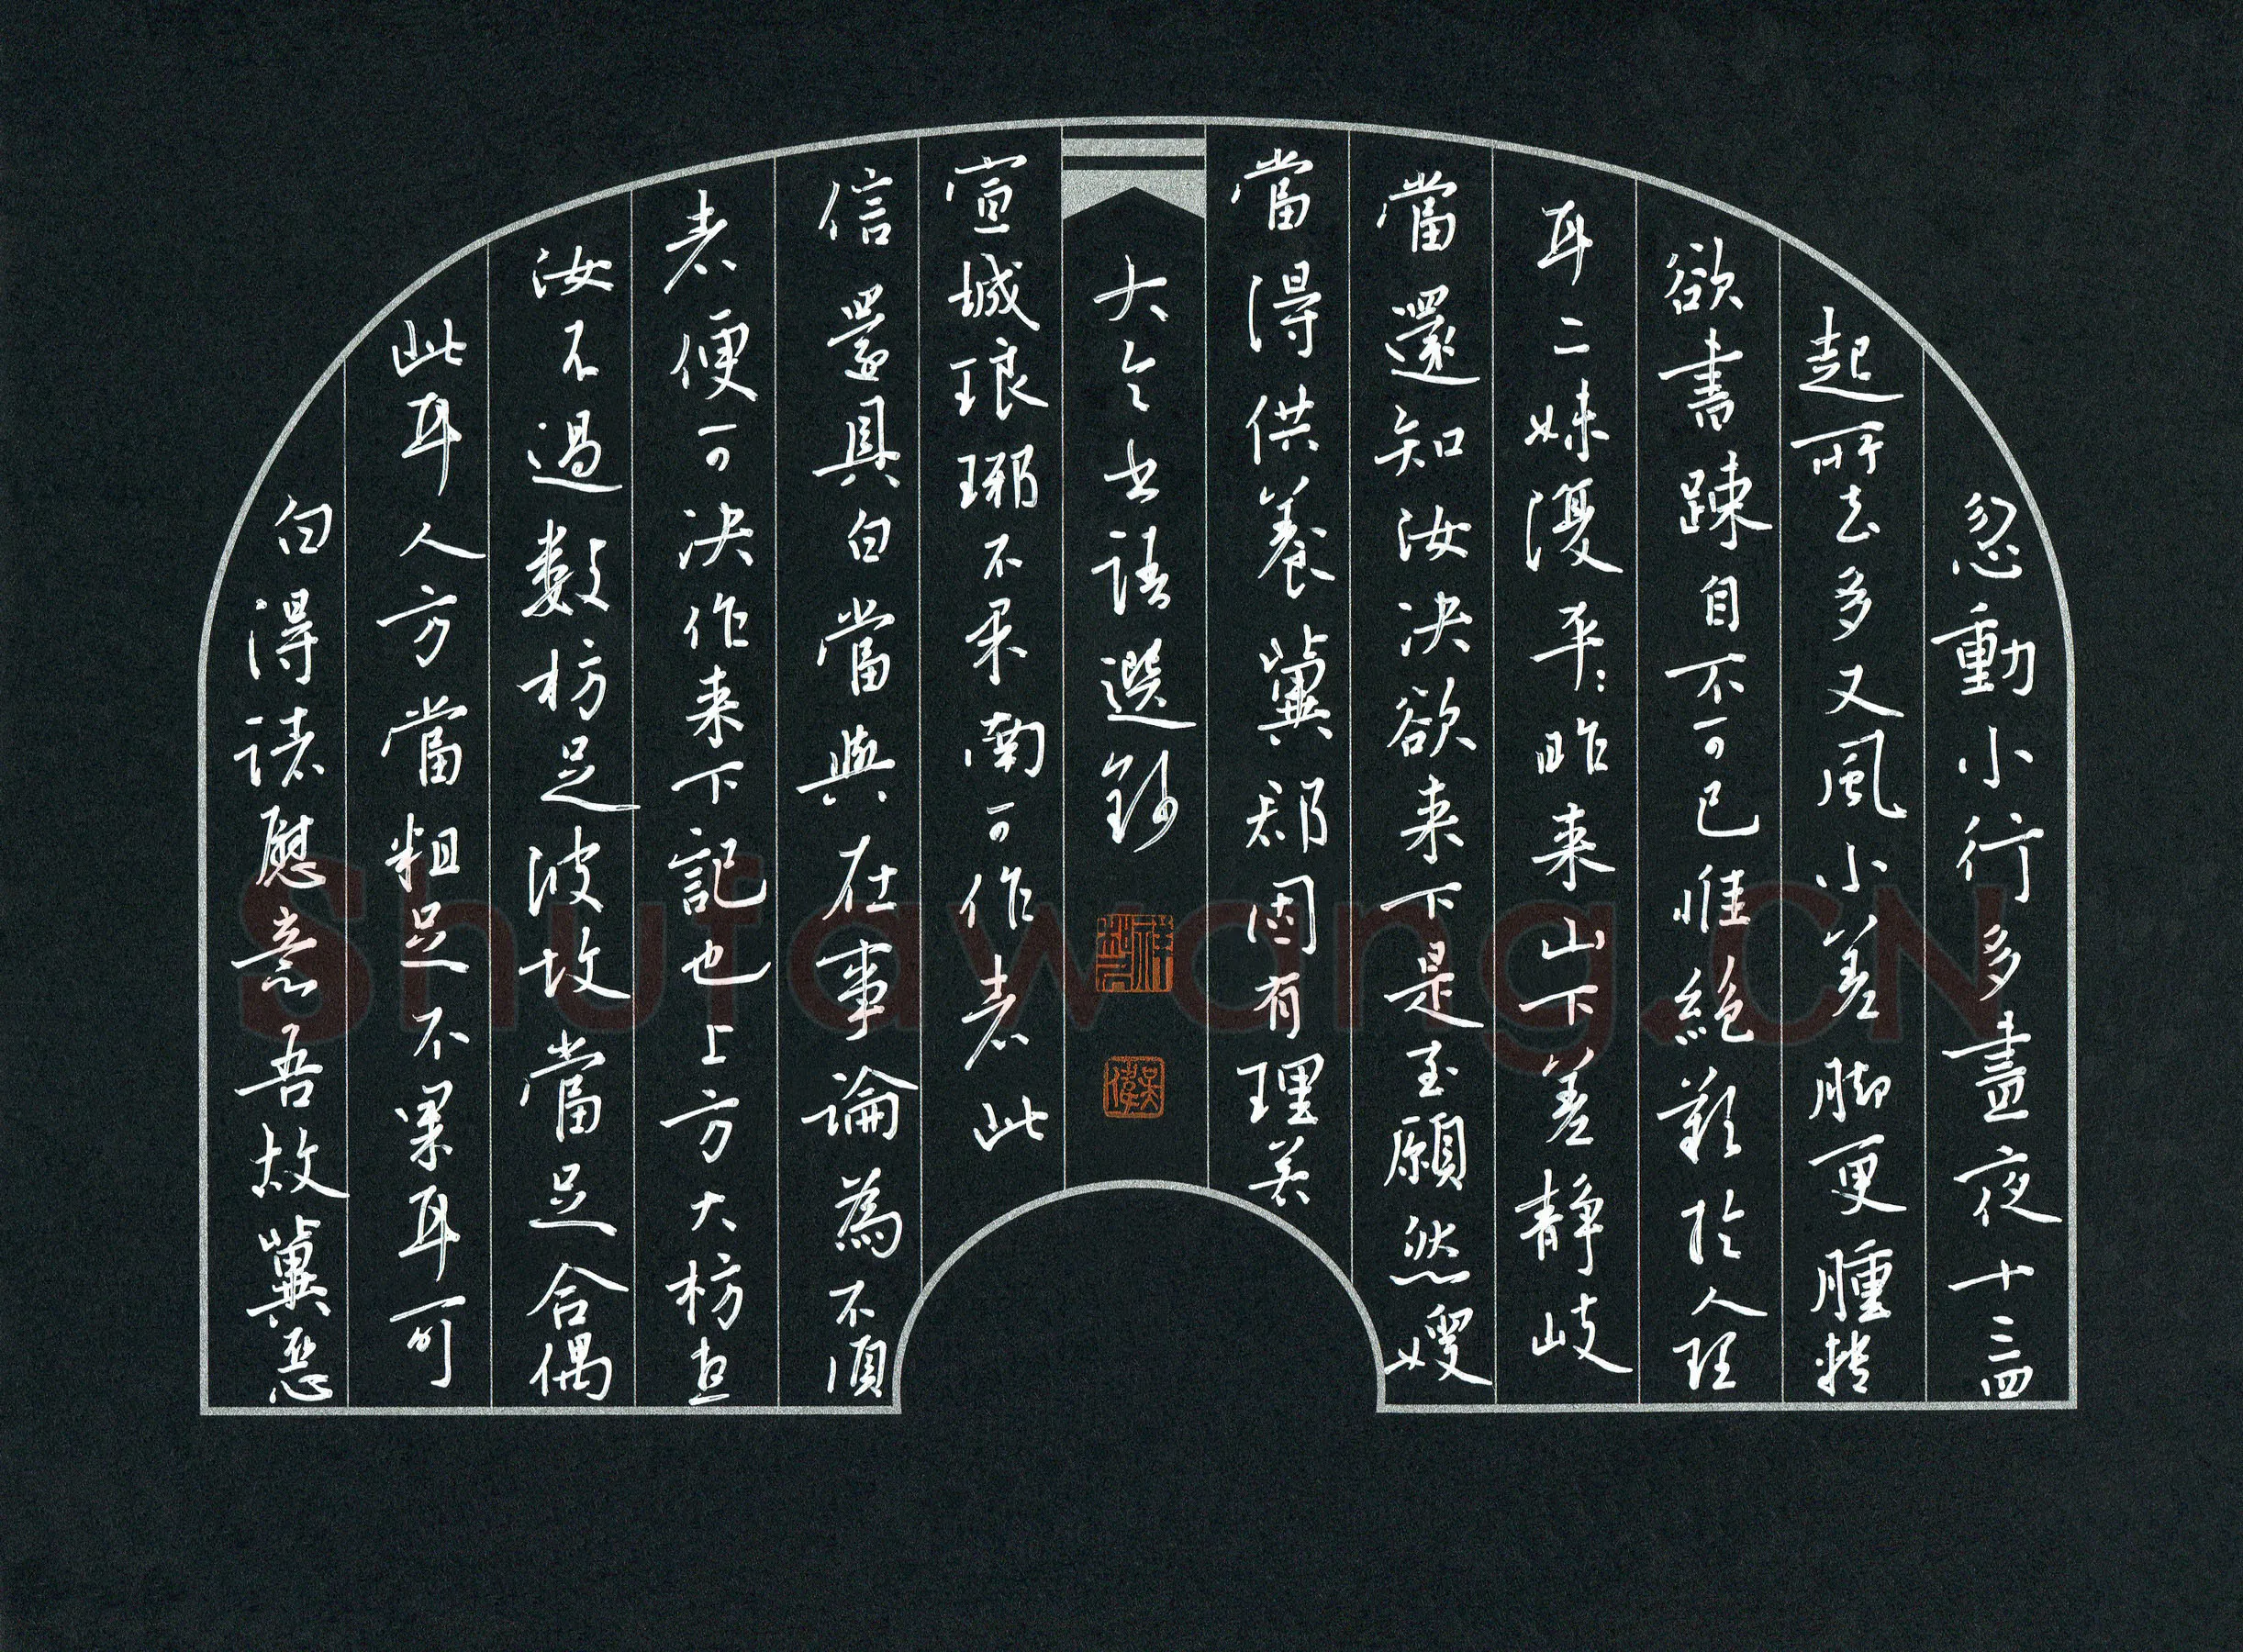 忽動小行多晝夜十三四
起所去多又風小差脚更腫
欲書疎自不可已惟絕歎於人理
耳二妹復平平昨來山下差静岐
當還知汝決欲來下是至願然嫂
當得供養冀郗因有理美
大令書語選鈔
宣城琅琊不果南可作者此
信還具白當與在事論為不順
者便可決作来下記也上方大枋直
汝不過數枋足波故當足合偶
此耳人方當粗足不果耳可
白得諸慰意吾故冀惡
吳偉
Shufawang.CN